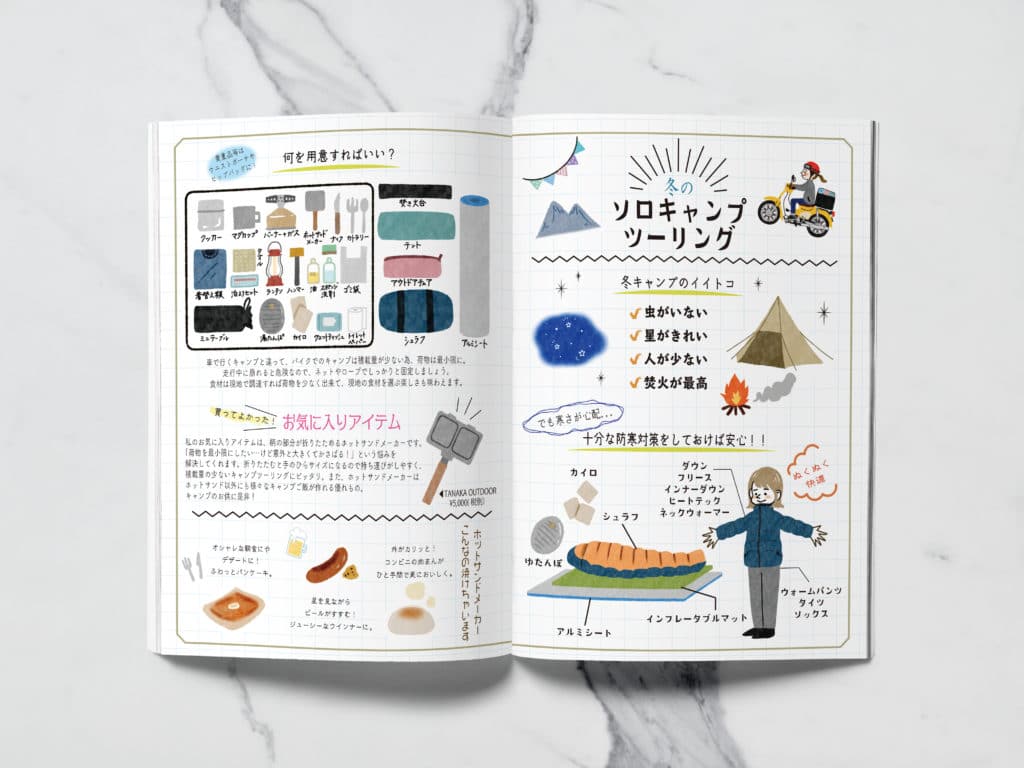 冬の
ソロキャンプ
ツーリング
冬キャンプのイイトコ
虫がいない
星がきれい
人が少ない
焚火が最高
でも寒さが心配...
十分な防寒対策をしておけば安心！！
カイロ
ゆたんぽ
シュラフ
アルミシート
インフレータブルマット
ダウン
フリース
インナーダウン
ヒートテック
ネックウォーマー
ぬくぬく
快適
ウォームパンツ
タイツ
ソックス
貴重品等は
ウエストポーチや
ヒップバッグに！
何を用意すればいい？
クッカー
マグカップ
バーナー+ガス
ホットサンド
メーカー
ナイフ
カトラリー
着替え類
タオル
泊まりセット
ランタン
ハンマー
油
スポンジ
洗剤
ゴミ袋
ミニテーブル
湯たんぽ
カイロ
ウェットティッシュ
トイレット
ペーパー
焚き火台
テント
アウトドアチェア
シュラフ
アルミシート
車で行くキャンプと違って、バイクでのキャンプは積載量が少ない為、荷物は最小限に。
走行中に崩れると危険なので、ネットやロープでしっかりと固定しましょう。
食材は現地で調達すれば荷物を少なく出来て、現地の食材を選ぶ楽しさも味わえます。
買ってよかった！
お気に入りアイテム
私のお気に入りアイテムは、柄の部分が折りたためるホットサンドメーカーです。
「荷物を最小限にしたい…けど意外と大きくてかさばる！」という悩みを
解決してくれます。折りたたむと手のひらサイズになるので持ち運びがしやすく、
積載量の少ないキャンプツーリングにピッタリ。また、ホットサンドメーカーは
ホットサンド以外にも様々なキャンプご飯が作れる優れもの。
キャンプのお供に是非！
◀TANAKA OUTDOOR
¥5,000(税別)
ホットサンドメーカー
こんなの焼けちゃいます
オシャレな朝食にや
デザートに！
ふわっとパンケーキ。
星を見ながら
ビールがすすむ！
ジューシーなウインナーに。
外がカリッと！
コンビニの肉まんが
ひと手間で更においしく。